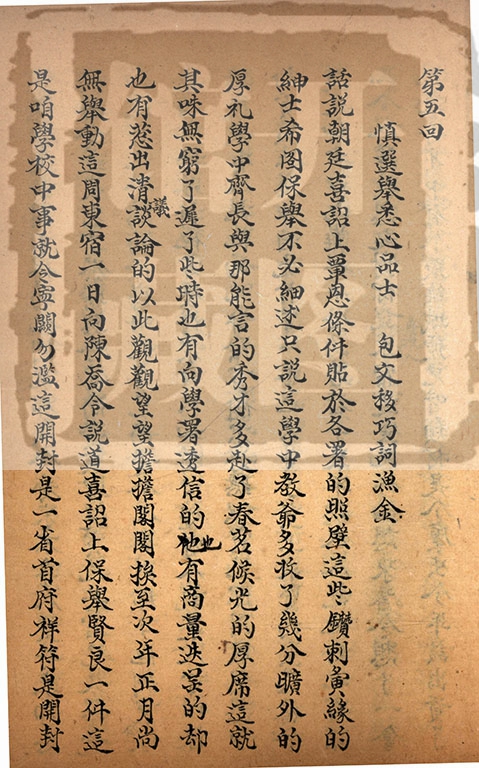 第五回
慎選舉悉心品士　包文移巧詞漁金
話說朝廷喜詔上覃恩條件貼於各署的照壁這些鑽刺夤緣的
紳士希圖保舉不必細述只說這學中教爺多收了幾分曠外的
厚礼學中齊長與那能言的秀才多赴了春茗候光的厚席這就
其味無窮了遲了些時也有向學署透信的也有商量迭呈的却
也有惹出清議談論的以此觀觀望望擔擔閣閣挨至次年正月尚
無舉動這周東宿一日向陳喬令說道喜詔上保舉賢良一件這
是咱學校中事就令寧闕勿濫這開封是一省首府祥符是開封